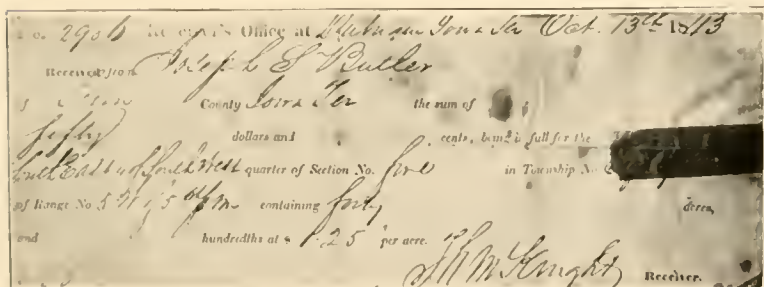 No. 2906 Receiver's Office at Dubuque Iowa Ter Oct. 13th 1843
Received from Joseph S Butler
of County Iowa Ter the sum of
fifty dollars and cents, being in full for the
South East of South West quarter of Section No. five in Township No
of Range No 5 W 5th P.M. containing forty acres,
and hundredths at $ 1.25 per acre.
Receiver.